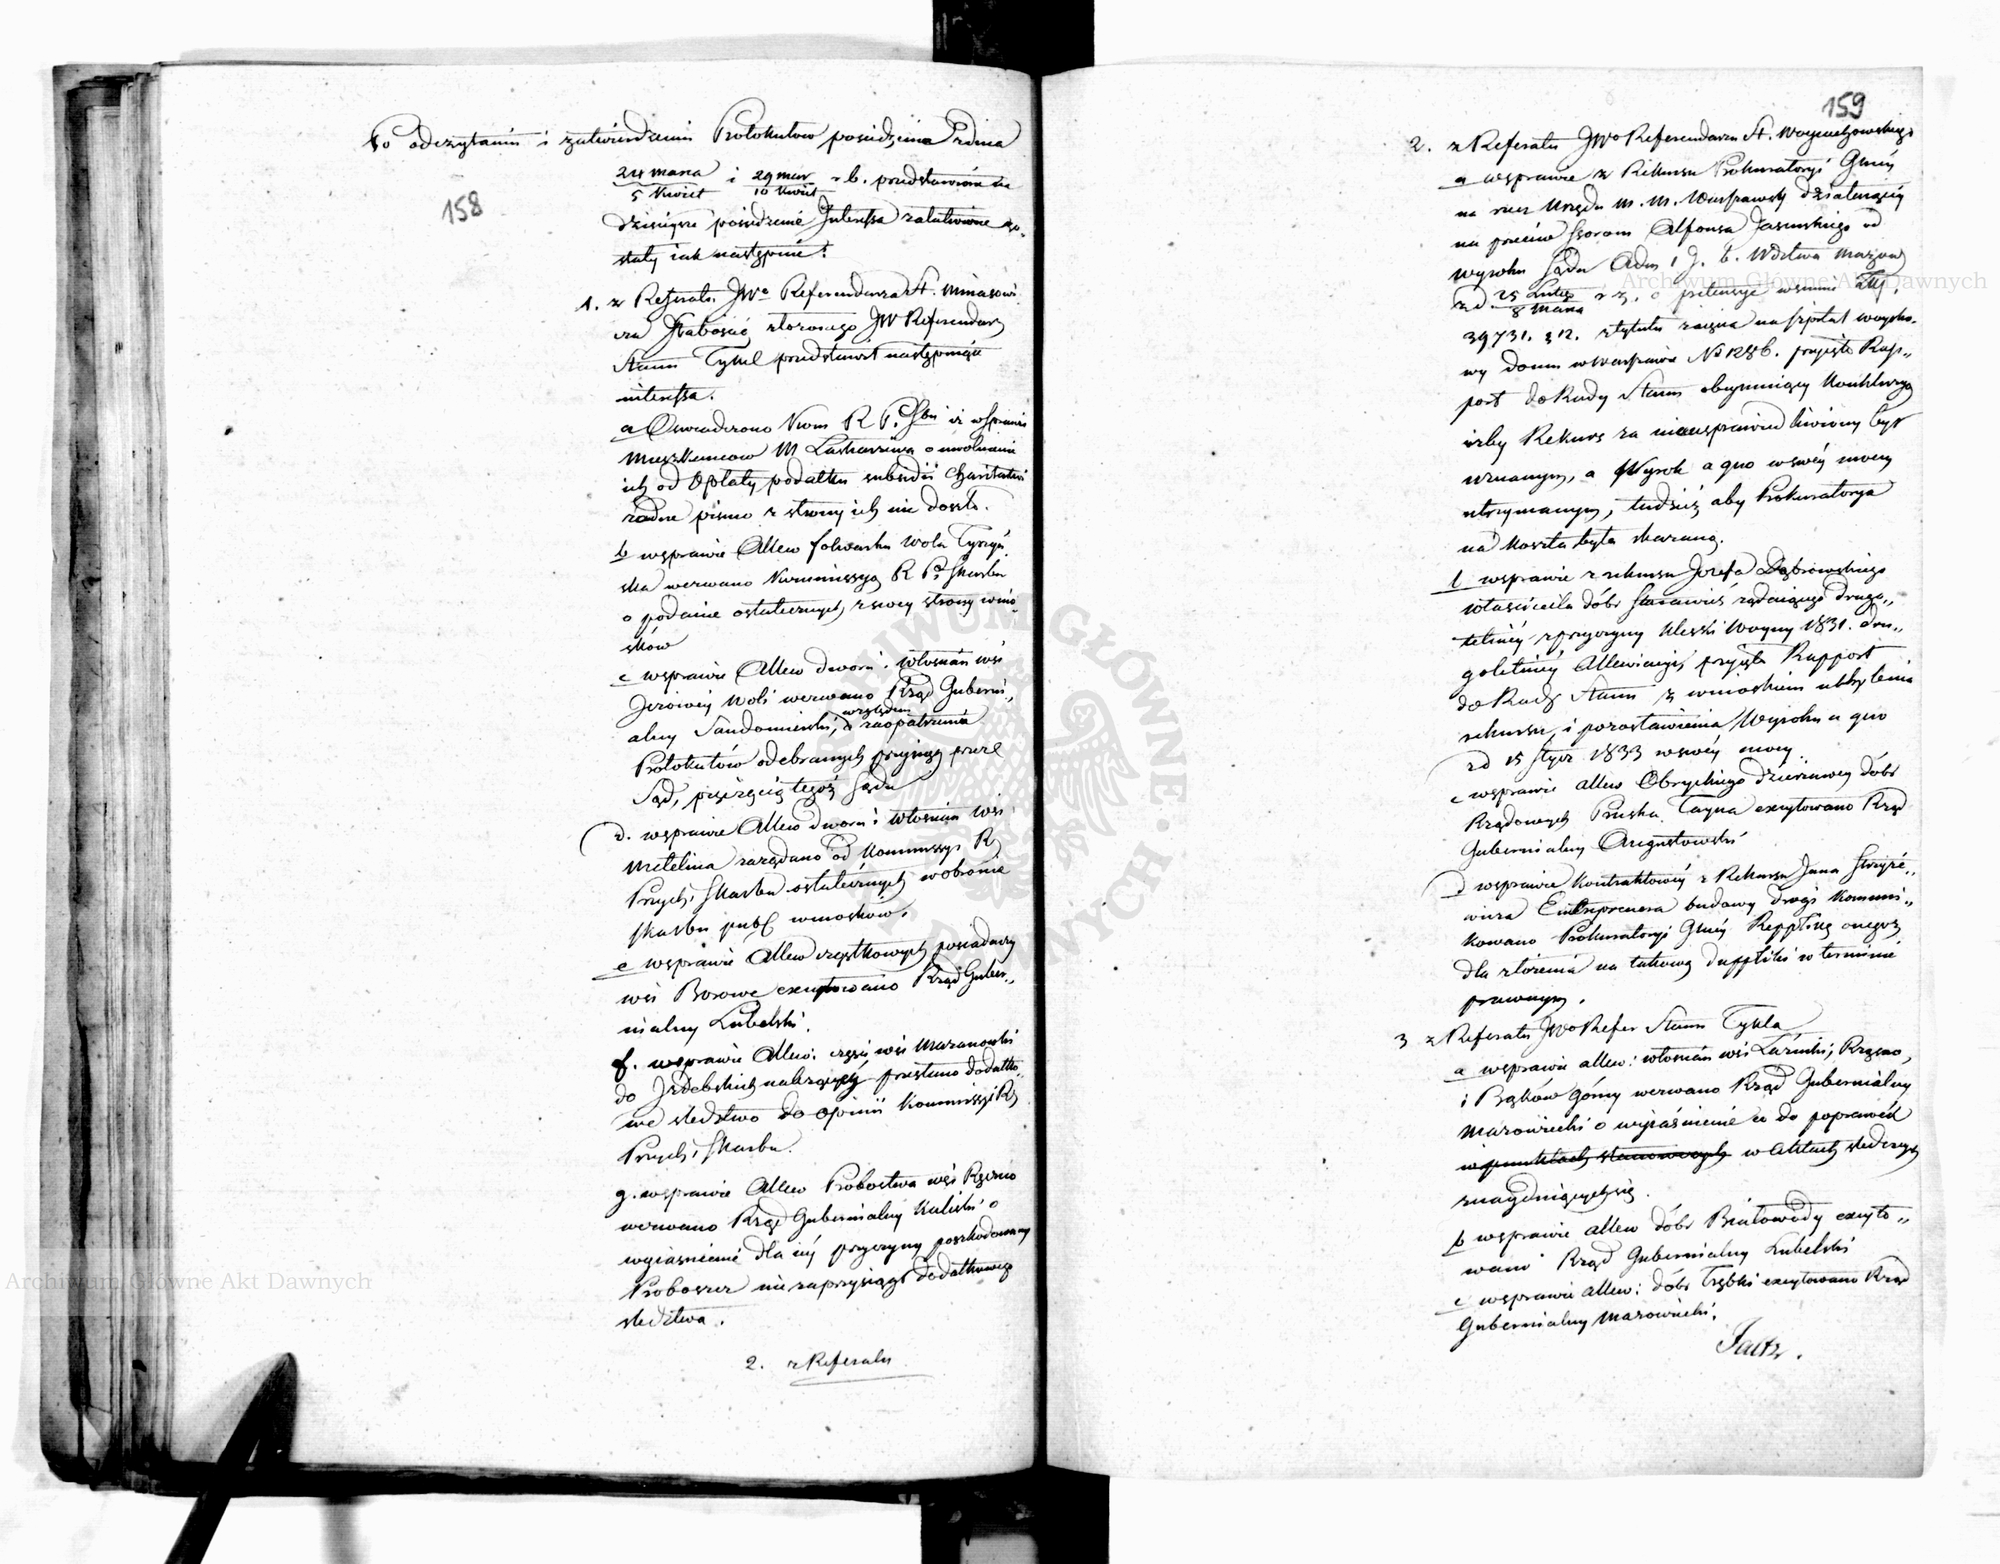 158
Po odczytaniu i zatwierdzeniu Protokułow posiedzenia z dnia
24 marca / 5 Kwiet i 29 mar / 10 Kwiet r b. przedstawione na
dzisieysze posiedzenie Interessa załatwione zo-
stały iak następuie:
1. z Referatu JWo Referendarza St.
za słabością złożonego JW Referendarz
Stanu Tykel przedstawił następuiące
interessa.
a Oświadczono Kom R P. Sbu iż w sprawie
Mieszkancow M o uwolnienie
ich od Opłaty podatku subsidii Charitativi
żadne pismo z strony ich nie doszło.
b w sprawie Allew folwarku Wola
ska wezwano Kommissyą R P. Skarbu
o podanie ostatecznych z swey strony wnio-
sków
c w sprawie Allew dworu i włoscian wsi
Woli wezwano Rząd Guberni„
alny Sandomierski, względem zaopatrzenia
Protokułów odebranych przysiąg przez
Sąd, pieczęcią tegoż Sądu
d. w sprawie Allew dworu i włoscian wsi
Mełelina zażądano od Kommissyi R
Przych i Skarbu ostatecznych w obronie
Skarbu publ wniosków.
e w sprawie Allew cząstkowych posiadaczy
wsi Borowe excytowano Rząd Guber„
nialny Lubelski.
f. w sprawie Allew: części wsi
do należących przesłano dodatko„
we sledztwo do opinii Kommissyi R
Przych i Skarbu.
g. w sprawie Allew Probostwa wsi Rzęzno
wezwano Rząd Gubernialny Kaliski o
wyiaśnienie dla iéy przyczyny poszkodowany
Proboszcz nie zaprzysiągł dodatkowego
sledztwa.
2. z Referatu
159
2. z Referatu JWo Referendarza St. Woyciechowskiego
a w sprawie z Rekursu Prokuratoryi Gnéy
na rzecz Urzędu M. M. Warszawy działaiącéy
na przeciw Alfonsa Jasinskiego od
wyroku Sądu Adm i J. C. Wdztwa Mazow
z d. 25 Lutego / 8 Marca r z. o pretensye w summie Złp.
39731. g 12. z tytułu zaięcia na szpital woysko-
wy domu w Warszawie No 1286. przyięto Rap„
port do Rady Stanu obeymuiący Konkluzyą
iżby Rekurs za nieusprawiedliwiony był
uznanym, a Wyrok a quo w swéy mocy
utrzymanym, tudzież aby Prokuratorya
na Koszta była skazaną.
b w sprawie z rekursu Jozefa Dąbrowskiego
własciciela dóbr żądaiącego drugo„
letniéy z przyczyny klęski Woyny 1831. dru„
goletniéy Allewiacyi przyięto Rapport
do Rady Stanu z wnioskiem uchylenia
rekursu, i pozostawienia Wyroku a quo
z d 15 Stycz 1833 w swéy mocy.
c w sprawie allew Obryckiego dzierzawcy dóbr
Rządowych Pruska Tayna excytowano Rząd
Gubernialny Augustowski
d w sprawie kontraktowéy z Rekursu Jana
Entreprenera budowy drogi kommuni„
kowano Prokuratoryi Gnéy Replikę onegoż
dla złożenia na takową Dupliki w terminie
prawnym.
3 z Referatu JWo Refer Stanu Tykla
a w sprawie allew: włoscian wsi Rżęsno,
i Bąków górny wezwano Rząd Gubernialny
Mazowiecki o wyiaśnienie co do poprawek
w punktach stanowczych w Aktach sledczych
znayduiących się.
b w sprawie allew dóbr Białowody excyto„
wano Rząd Gubernialny Lubelski
c w sprawie allew: dóbr Trębki excytowano Rząd
Gubernialny Mazowiecki.
Archiwum Główne Akt Dawnych
Archiwum Główne Akt Dawnych